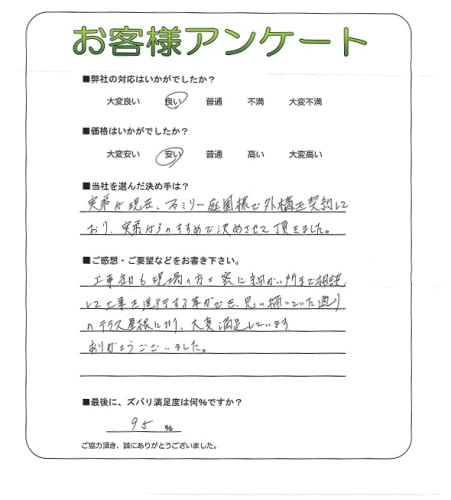 お客様アンケート
■弊社の対応はいかがでしたか?
大変良い 良い 普通 不満 大変不満
■価格はいかがでしたか?
大変安い 安い 普通 高い 大変高い
■当社を選んだ決め手は?
実弟が現在、ファミリー庭園様で外構を契約して
おり、実弟からのすすめで決めさせて頂きました。
■ご感想・ご要望などをお書き下さい。
工事中も現場の方と密に細かい所まで相談
して工事を進行する事ができ、思い描いていた通り
のテラス屋根になり、大変満足しています
ありがとうございました。
■最後に、ズバリ満足度は何%ですか?
95 %
ご協力頂き、誠にありがとうございました。